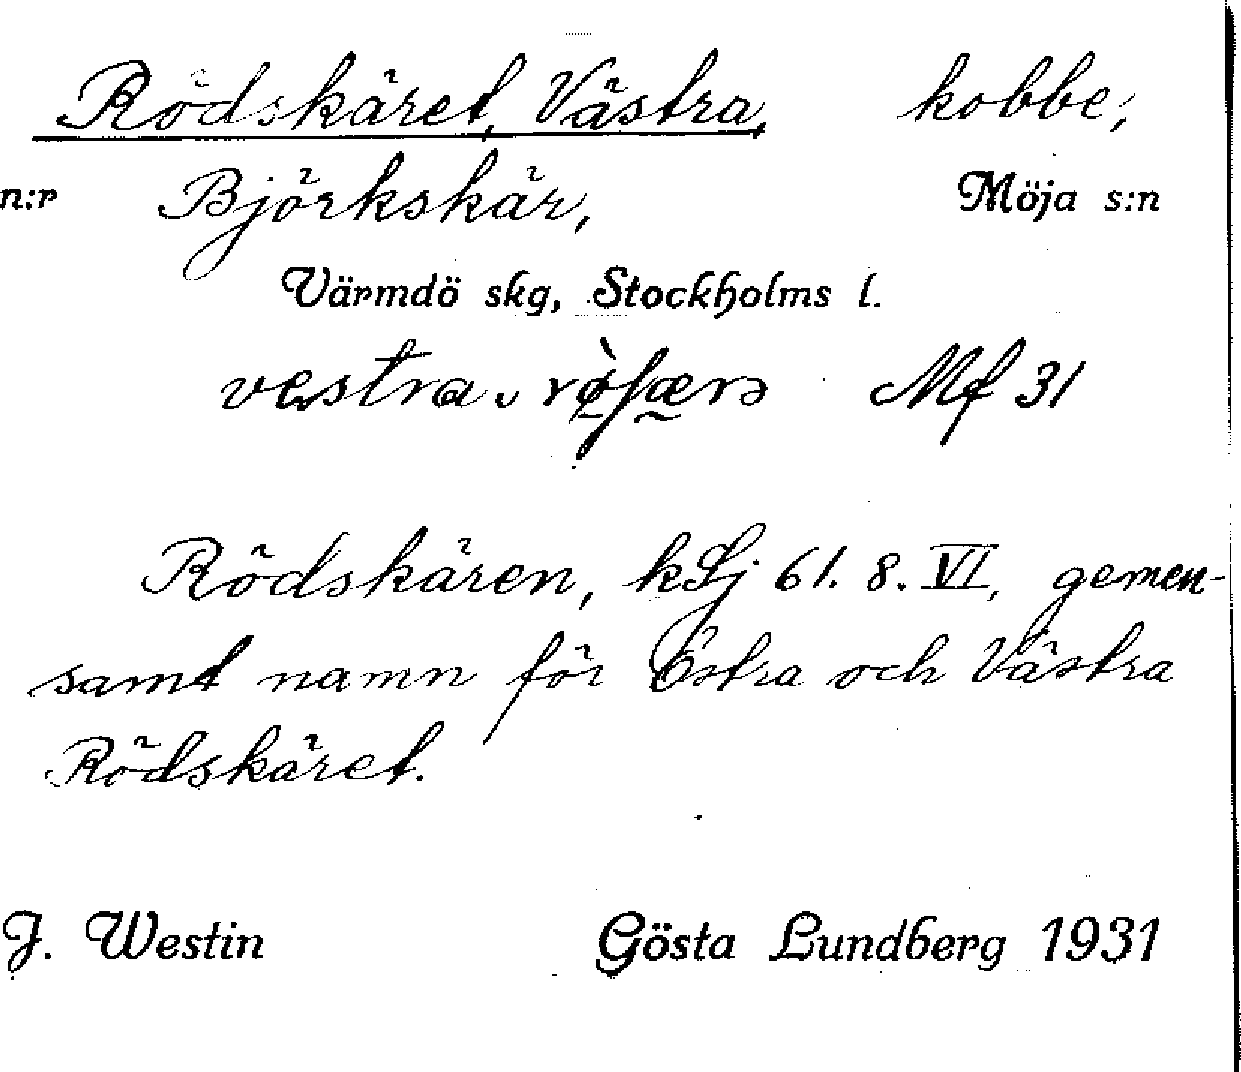 Rödskäret, Västra, kobbe;
n:r Björkskär, Möja s:n
Värmdö skg, Stockholms l.
vestra Mf 31
Rödskären, kLj 61. 8. VI, gemen-
samt namn för Östra och Västra
Rödskäret.
J. Westin Gösta Lundberg 1931